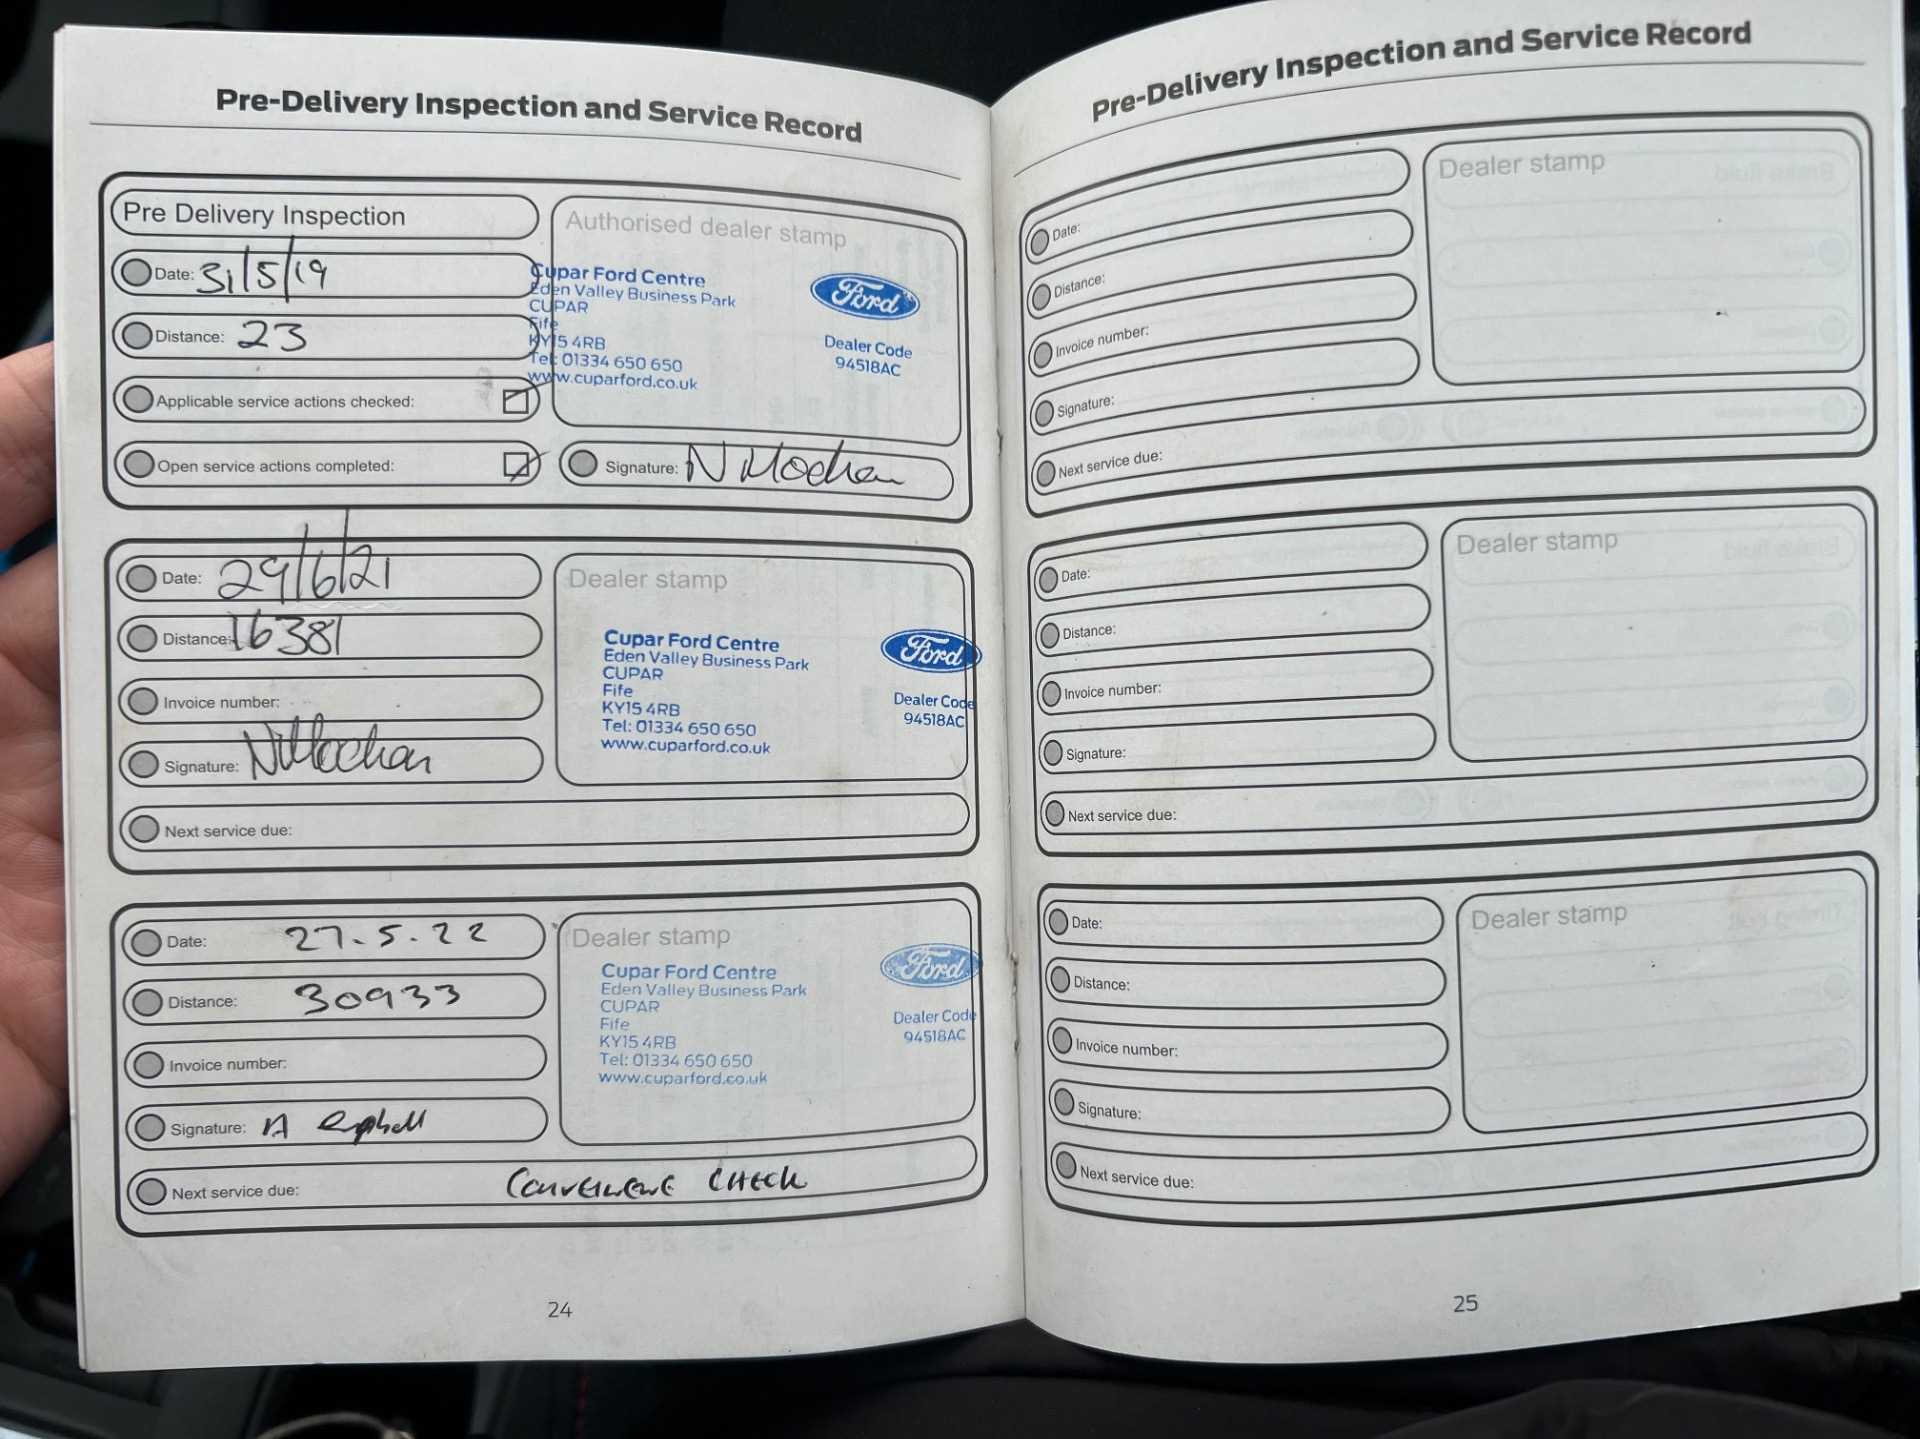 Pre-Delivery Inspection and Service Record
Pre Delivery Inspection
Date: 31/5/19
Distance: 23
Applicable service actions checked:
Open service actions completed:
Authorised dealer stamp
Cupar Ford Centre
Eden Valley Business Park
CUPAR
Fife
KY15 4RB
Tel: 01334 650 650
www.cuparford.co.uk
Ford
Dealer Code
94518AC
Signature: N
Date: 29/6/21
Distance: 16381
Invoice number:
Signature: N
Next service due:
Dealer stamp
Cupar Ford Centre
Eden Valley Business Park
CUPAR
Fife
KY15 4RB
Tel: 01334 650 650
www.cuparford.co.uk
Ford
Dealer Code
94518AC
Date: 27.5.22
Distance: 30933
Invoice number:
Signature: A
Next service due: CHECK
Dealer stamp
Cupar Ford Centre
Eden Valley Business Park
CUPAR
Fife
KY15 4RB
Tel: 01334 650 650
www.cuparford.co.uk
Ford
Dealer Code
94518AC
24
Pre-Delivery Inspection and Service Record
Date:
Distance:
Invoice number:
Signature:
Next service due:
Dealer stamp
Date:
Distance:
Invoice number:
Signature:
Next service due:
Dealer stamp
Date:
Distance:
Invoice number:
Signature:
Next service due:
Dealer stamp
25